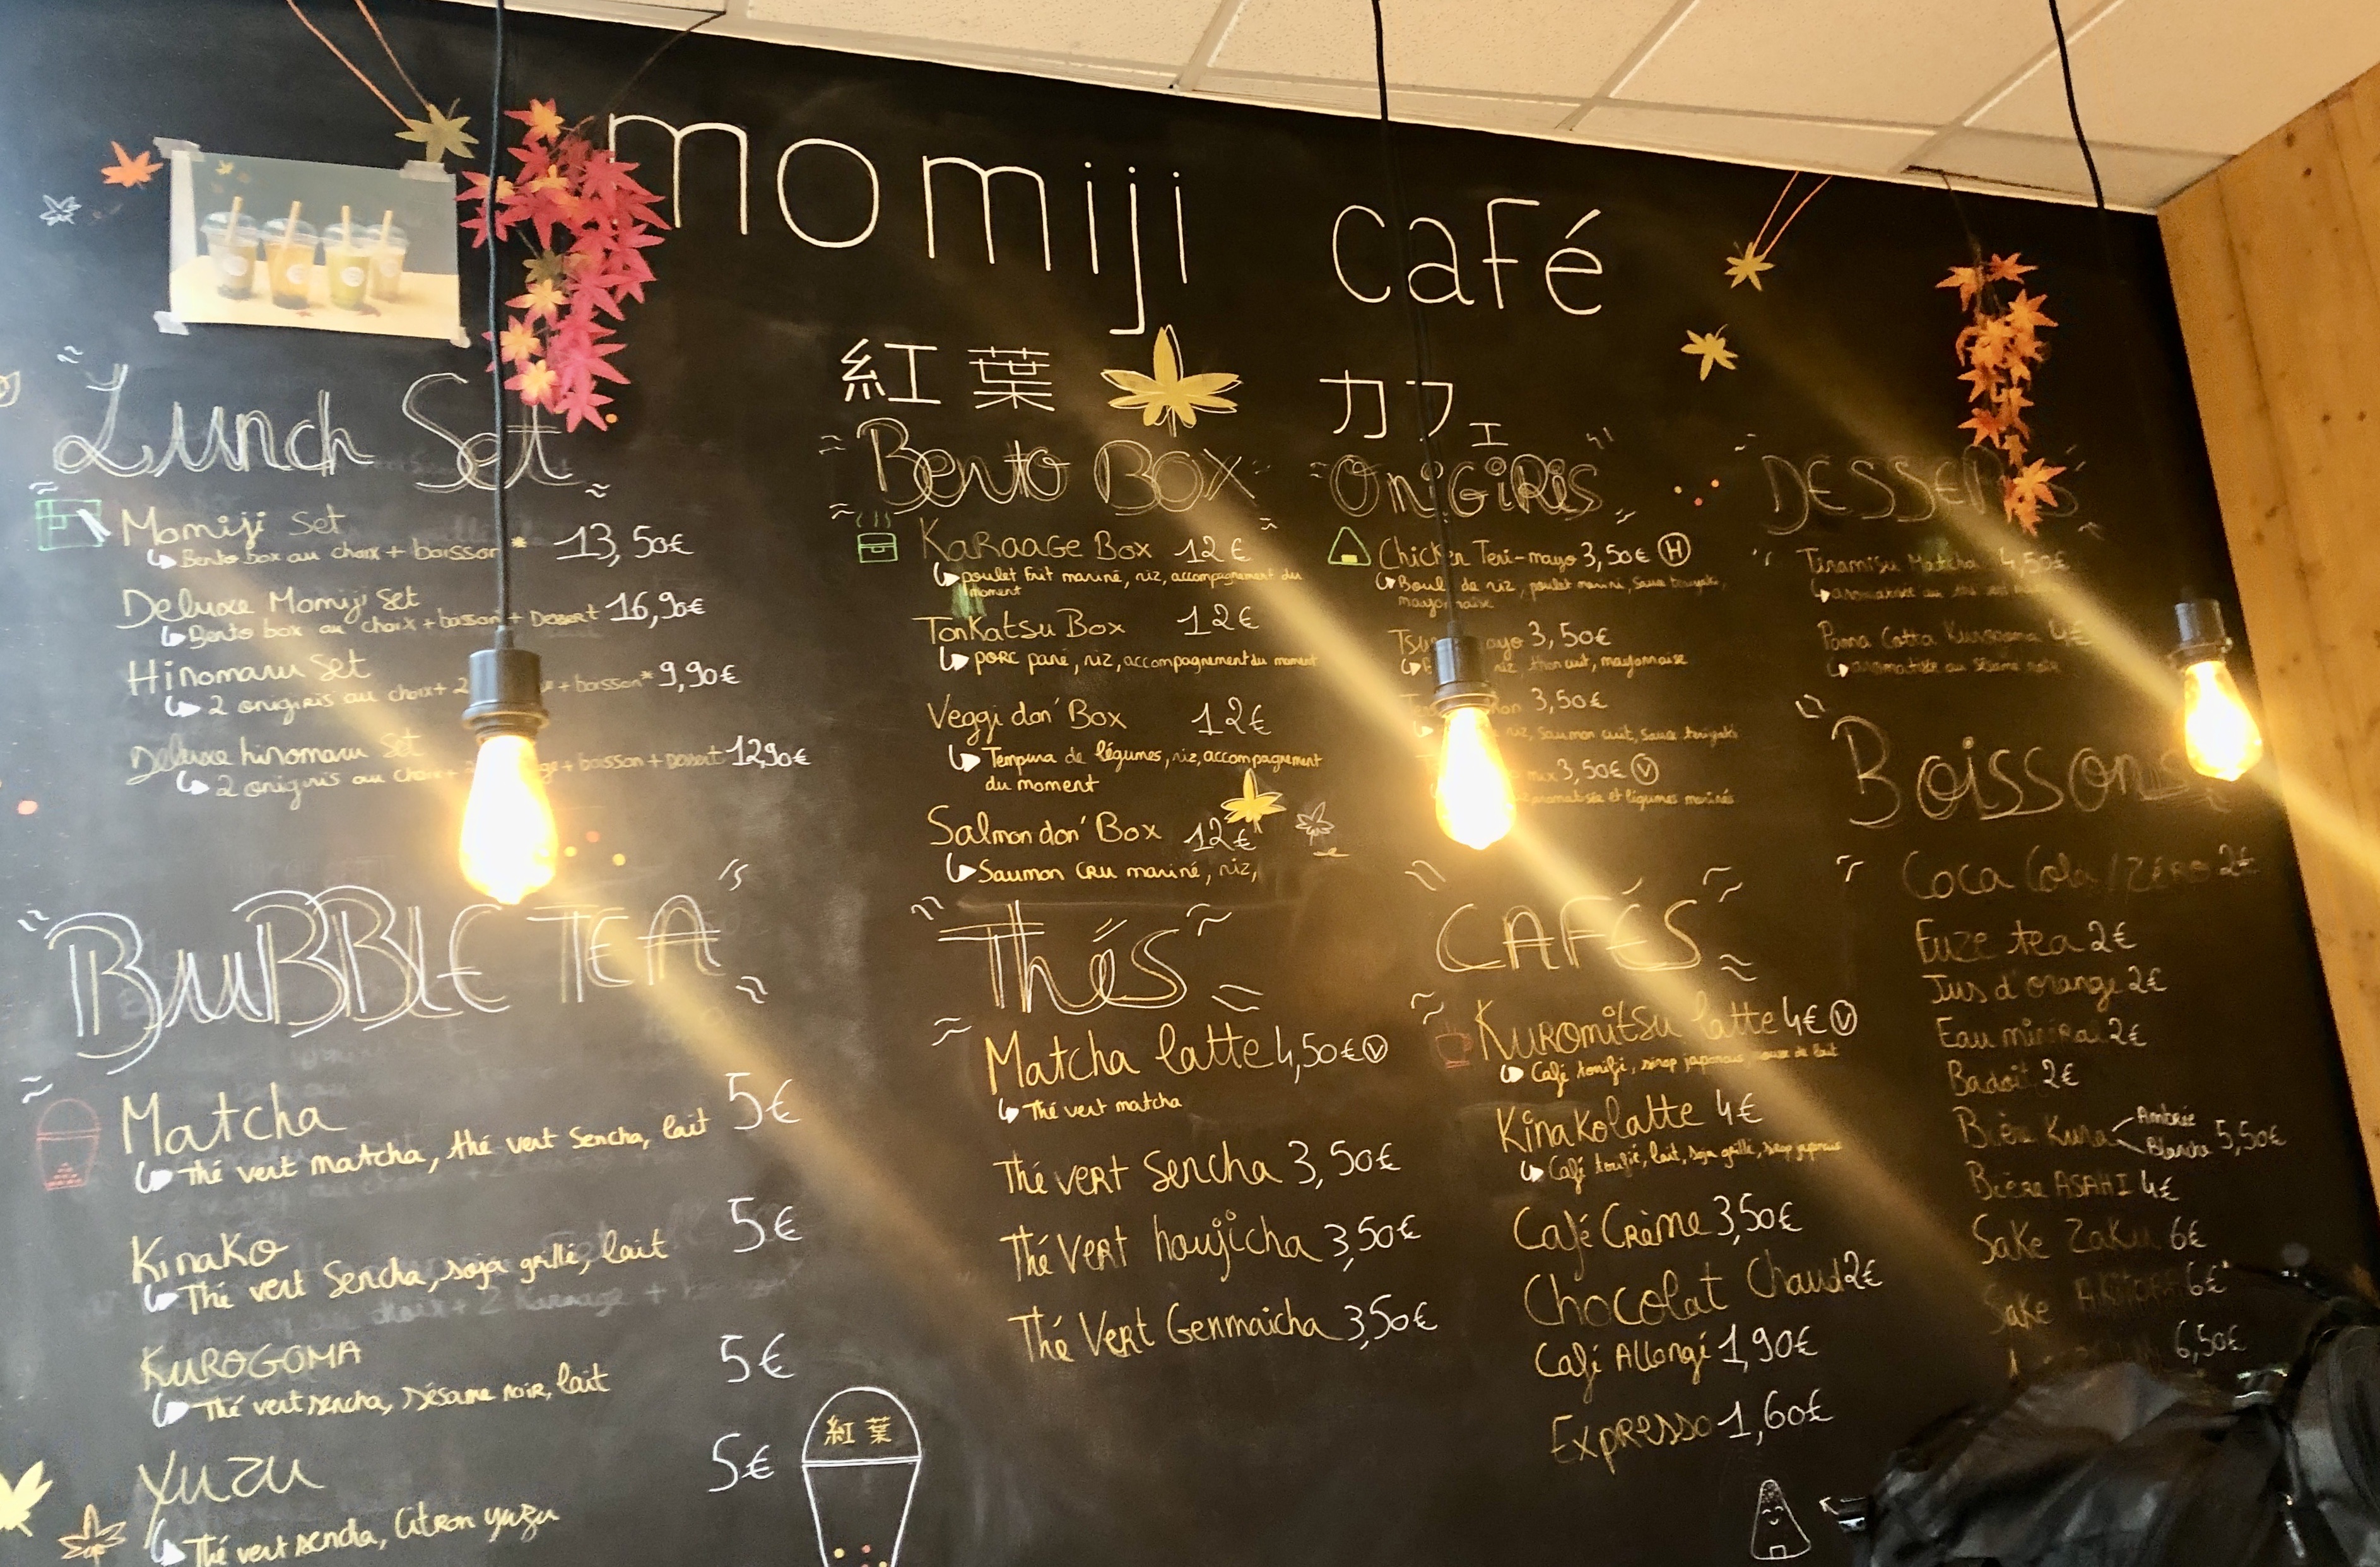 momiji café
紅葉 カフェ
Lunch Set
Momiji Set 13,50€
Bento box au choix + boisson *
Deluxe Momiji Set 16,90€
Bento box au choix + boisson + Dessert
Hinomaru Set 9,90€
2 onigiris au choix + 2 + boisson*
Deluxe hinomaru Set 12,90€
2 onigiris au choix + + boisson + Dessert
BuBBLE TEA
Matcha 5€
Thé vert matcha, thé vert Sencha, lait
Kinako 5€
Thé vert Sencha, soja grillé, lait
KUROGOMA 5€
Thé vert sencha, Sésame noir, lait
Yuzu 5€
Thé vert sencha, Citron yuzu
紅葉
Bento BOX
KaRaaGe Box 12€
poulet frit mariné, riz, accompagnement du
moment
TonKatsu Box 12€
PORC pané, riz, accompagnement du moment
Veggi don' Box 12€
Tempura de légumes, riz, accompagnement
du moment
Salmon don' Box 12€
Saumon CRU mariné, riz,
Thés
Matcha latte 4,50€ V
Thé vert matcha
Thé vert Sencha 3,50€
Thé Vert houjicha 3,50€
Thé Vert Genmaicha 3,50€
ONiGiRis
Chicken Teri-mayo 3,50€ H
Boule de riz, poulet mariné, sauce teriyaki,
mayonnaise
3,50€
riz, thon cuit, mayonnaise
3,50€
riz, saumon cuit, sauce teriyaki
mix 3,50€ V
aromatisée et légumes marinés
CAFÉS
Kuromitsu latte 4€ V
Café torréfié, sirop japonais, mousse de lait
Kinakolatte 4€
Café torréfié, lait, soja grillé, sirop japonais
Café Crème 3,50€
Chocolat Chaud 2€
Café Allongé 1,90€
Expresso 1,60€
DESSER
Tiramisu Matcha 4,50€
aromatisée au thé vert
Panna Cotta Kurogoma 4€
aromatisée au sésame noir
Boissons
Coca Cola / ZéRO 2€
Fuze tea 2€
Jus d'orange 2€
Eau minéral 2€
Badoit 2€
Bière Kura Ambrée
Blanche 5,50€
Bière ASAHI 4€
Sake Zaku 6€
Sake 6€
6,50€